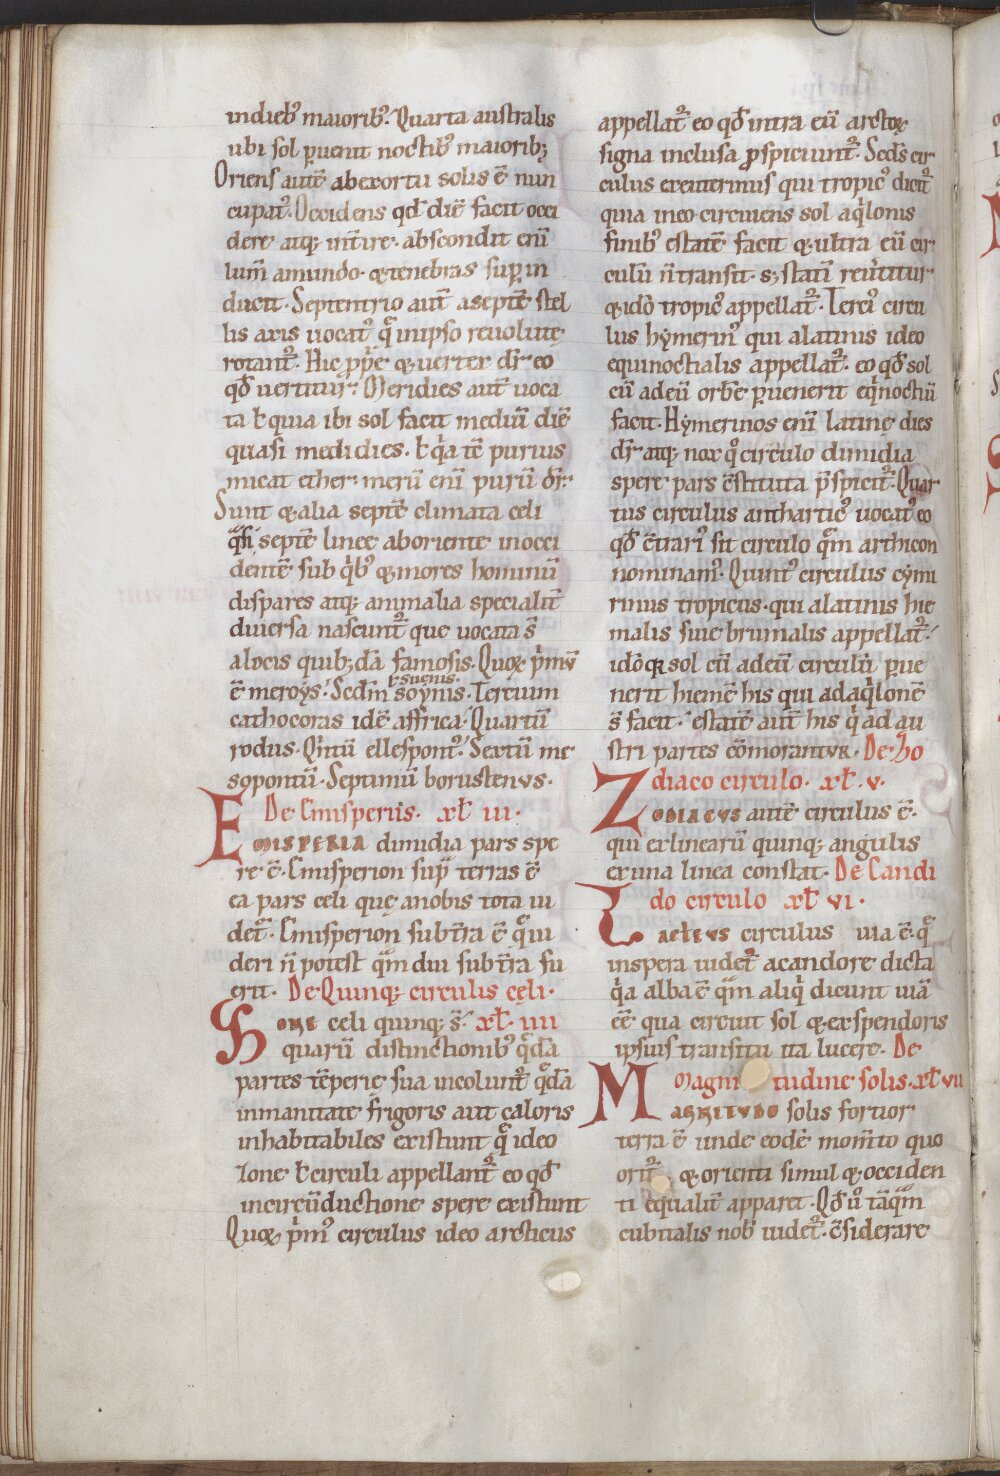 indieb᷒ maiorib᷒. Quarta australis
ubi sol puenit noctib᷒ maiorib;
Oriens autē abexortu solis ē nun
cupat᷒. Occidens qd̄ diē facit occi
dere atq; int̄ire. abscondit eni
lum̄ amundo. &tenebras supin
ducit. Septentrio aut̄ aseptē stel
lis axis uocat᷒ qͣ inipso reuolutę
rotant᷒. Hic ꝓprie & uertex dr̄ eo
qd̄ uertitur. Meridies aut̄ uoca
ta ł quia ibi sol facit mediū diē
quasi medidies. ł qͥa tc̄ purius
micat ether. merū enī purū dr̄.
Sunt & alia septē climata celi
qͣsi septē lineę aboriente inocci
dentē sub qͥb᷒ & mores hominū
dispares atq; animalia specialit̄
diuersa nascunt᷒ que uocata s̄
alocis quib;dā famosis. Quoꝝ pͥmū
ē meroys. Scdm̄ soynis. Tercium
ł suenis.
cathocoras idē affrica. Quartū
rodus. Qͥntū ellespont᷒. Sextū me
sopontū. Septimū boristenus.
De Emisperiis. xł. iii.
EMISPERIA dimidia pars spe
re ē. Emisperion supͣ terras ē
ea pars celi quę anobis tota ui
det᷒. Emisperion subt̄ra ē qͣ ui
deri n̄ potest qͣm diu subt̄ra fu
erit. De Quinq; circulis cęli.
ZONE celi quinq; s̄. xł. iiii
quarū distinctionib᷒ qͣdā
partes tēperię sua incolunt᷒ qͣdā
inmanitate frigoris aut caloris
inhabitabiles existunt qͣ ideo
zone ł circuli appellant᷒ eo qd̄
incircūductione spere existunt
Quoꝝ pͥm᷒ circulus ideo arcticus
appellat᷒ eo qd̄ intra eū arctoꝝ
signa inclusa ꝓspiciunt᷒. Scds̄ cir
culus exeiterinus qui tropic᷒ dicit᷒
quia ineo circuiens sol aqͥlonis
finib᷒ estatē facit & ultra eū cir
culū n̄ transit. s; statī reūtitur
& idō tropic᷒ appellat᷒. Terci᷒ circu
lus hymerin᷒ qui alatinis ideo
equinoctialis appellat᷒. eo qd̄ sol
cū adeū orbē puenerit eqͥnoctiū
facit. Hymerinos enī latine dies
dr̄ atq; nox qͦ circulo dimidia
spere pars c̄stituta pspicit᷒. Quar
tus circulus anthartic᷒ uocat᷒ eo
qd̄ c̄trari᷒ sit circulo qͣm arthicon
nominam᷒. Quint᷒ circulus cymi
rinus tropicus. qui alatinis hie
malis siue brumalis appellat᷒.
idōqꝫ sol cū adeū circulū pue
nerit hiemē his qui adaqͥlonē
s̄ facit. estatē aut̄ his qͥ ad au
stri partes cōmorantur. De ho
diaco circulo. xł. v.
ZODIACUS autē circulus ē.
qui exlinearū quinq; angulis
exuna linea constat. De Candi
do circulo xł vi.
LACTEUS circulus uia ē. qͣ
inspera uidet᷒ acandore dicta
qͥa alba ē qͣm aliqͥ dicunt uiā
ēē qua circuit sol & exspendoris
ipsius transitu ita lucere. De
Magnitudine solis. xł vii
MAGNITUDO solis fortior
terra ē unde eodē mom̄to quo
orit᷒ & orienti simul & occiden
ti eqͣualit̄ apparet. Qd̄ uͦ tāqͣm
cubitalis nob᷒ uidet᷒. c̄siderare